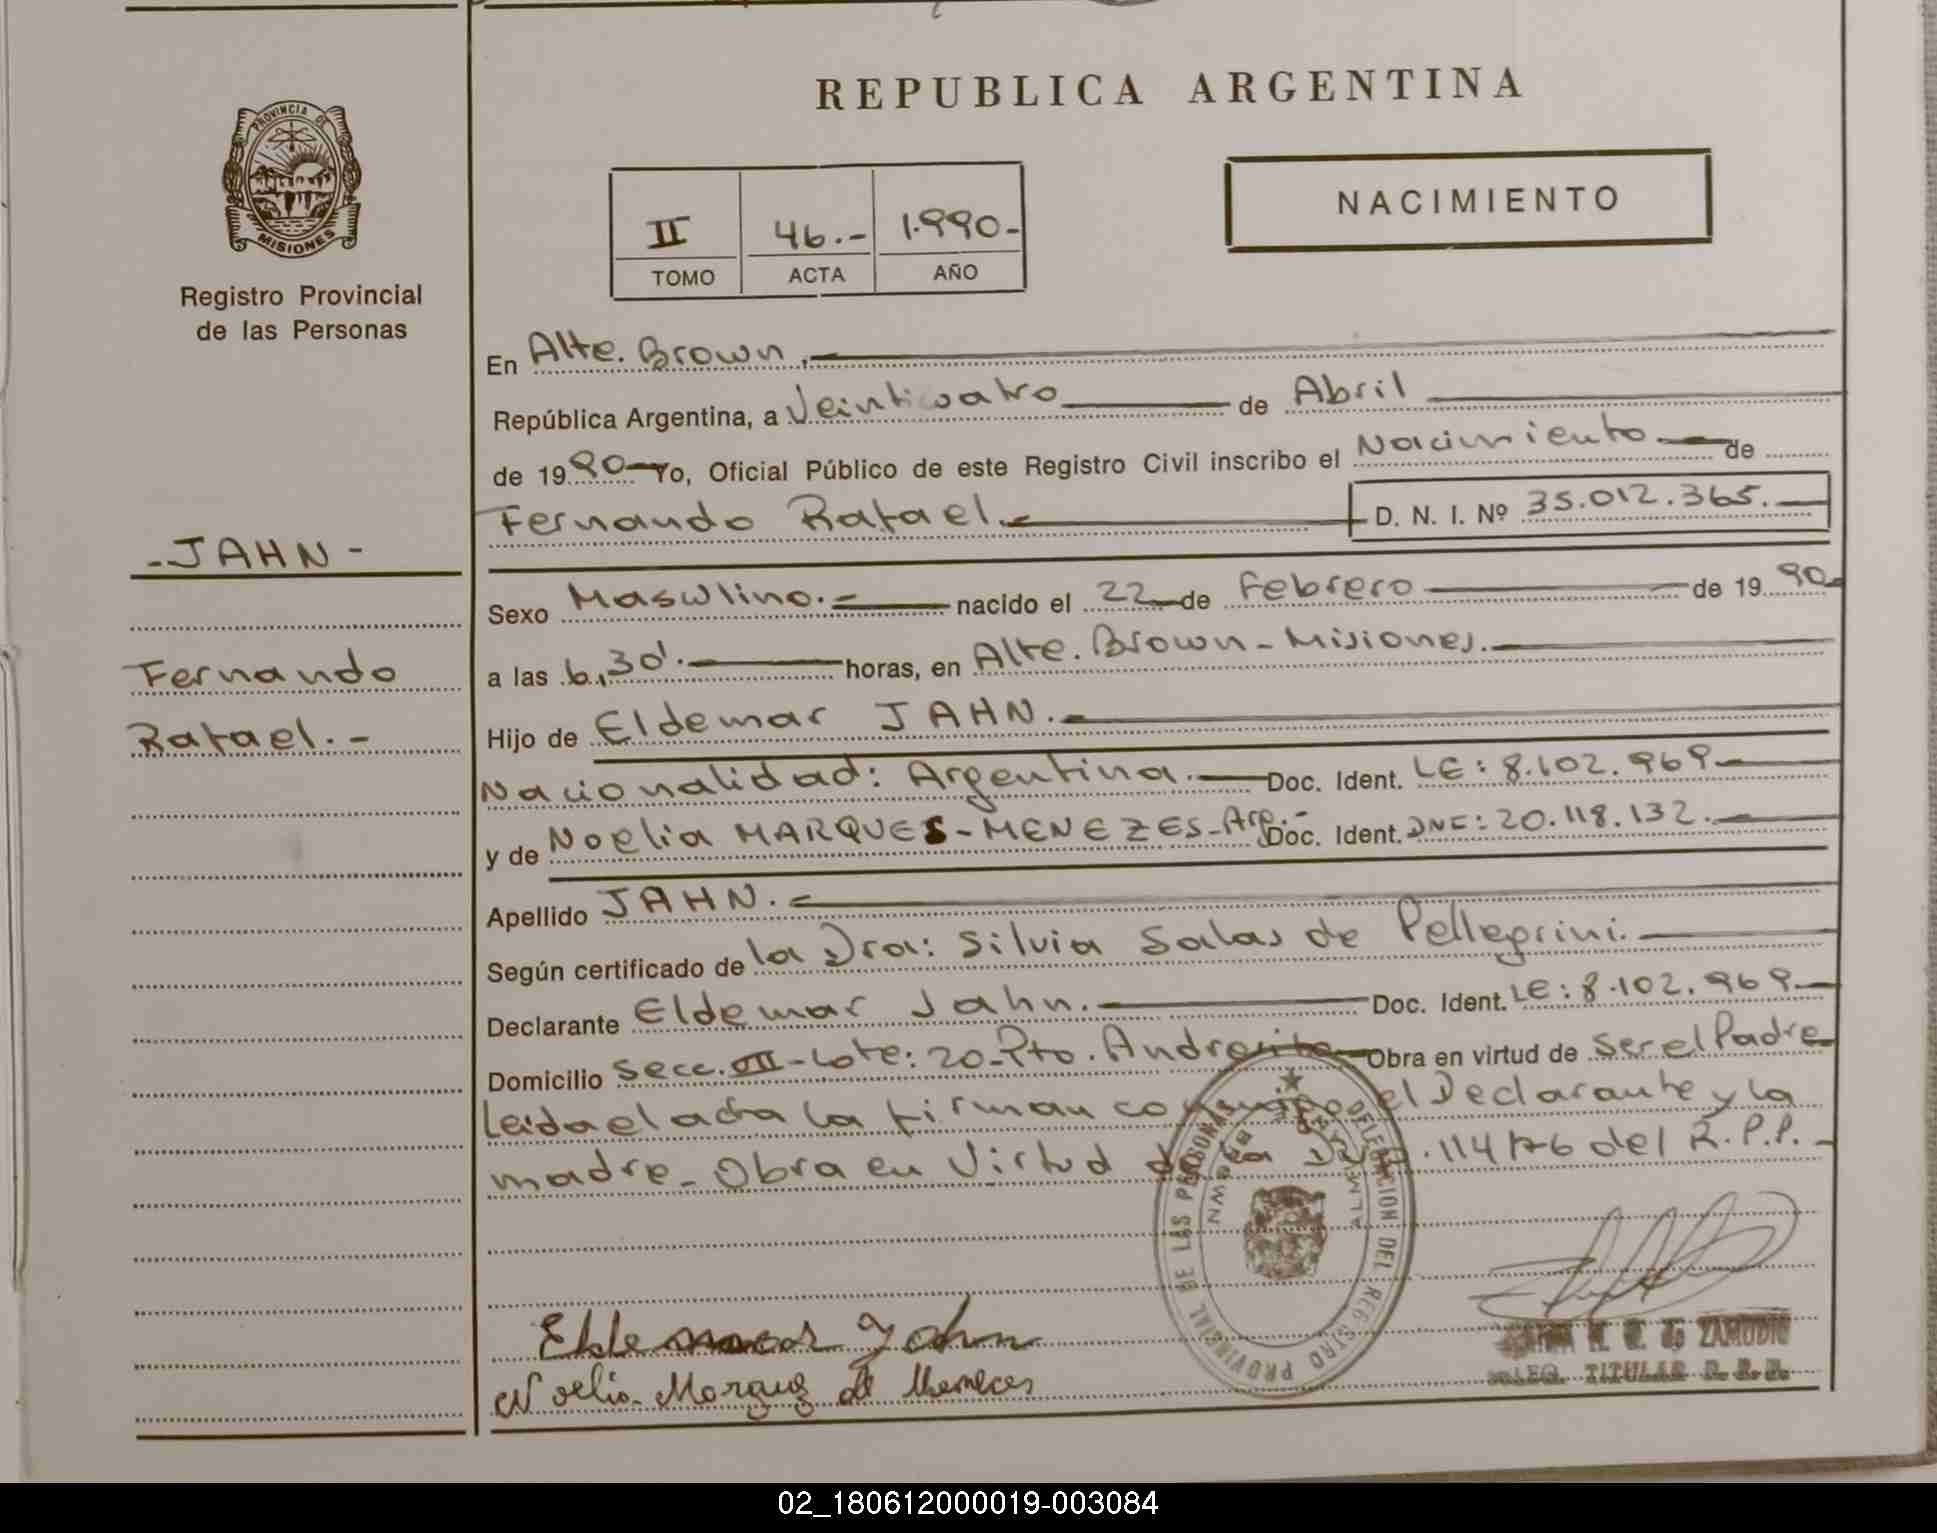 REPUBLICA ARGENTINA
PROVINCIA DE
MISIONES
Registro Provincial
de las Personas
II 46.- 1.990-
TOMO ACTA AÑO
NACIMIENTO
En Alte. Brown.
República Argentina, a Veinticuatro de Abril
de 1990 Yo, Oficial Público de este Registro Civil inscribo el Nacimiento de
Fernando Rafael. D. N. I. Nº 35.012.365.
-JAHN-
Fernando
Rafael.-
Sexo Masculino.- nacido el 22 de Febrero de 1990-
a las 6,30'. horas, en Alte. Brown - Misiones.
Hijo de Eldemar JAHN.
Nacionalidad: Argentina. Doc. Ident. LE: 8.102.969
y de Noelia MARQUES-MENEZES-Arg.- Doc. Ident. 20.118.132.
Apellido JAHN.
Según certificado de la Dra: Silvia Salas de Pellegrini.
Declarante Eldemar Jahn. Doc. Ident. LE: 8.102.969
Domicilio Secc. -Lote: 20-Pto. Andresito Obra en virtud de Ser el Padre
Leida el acta la firman conmigo el Declarante y la
madre- Obra en Virtud de la 114/76 del R.P.P.-
DELEGACION DEL REGISTRO PROVINCIAL DE LAS PERSONAS
BROWN
Eldemar Jahn
Noelia Marquez de Meneces
ZAMUDIO
TITULAR R.P.P.
02_180612000019-003084